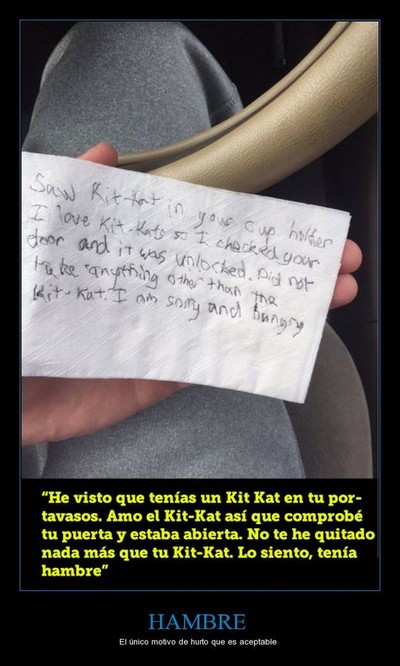 Saw Kit-Kat in your cup holder
I love Kit-Kats so I checked your
door and it was unlocked. Did not
take anything other than the
Kit-Kat. I am sorry and hungry
“He visto que tenías un Kit Kat en tu por-
tavasos. Amo el Kit-Kat así que comprobé
tu puerta y estaba abierta. No te he quitado
nada más que tu Kit-Kat. Lo siento, tenía
hambre”
HAMBRE
El único motivo de hurto que es aceptable